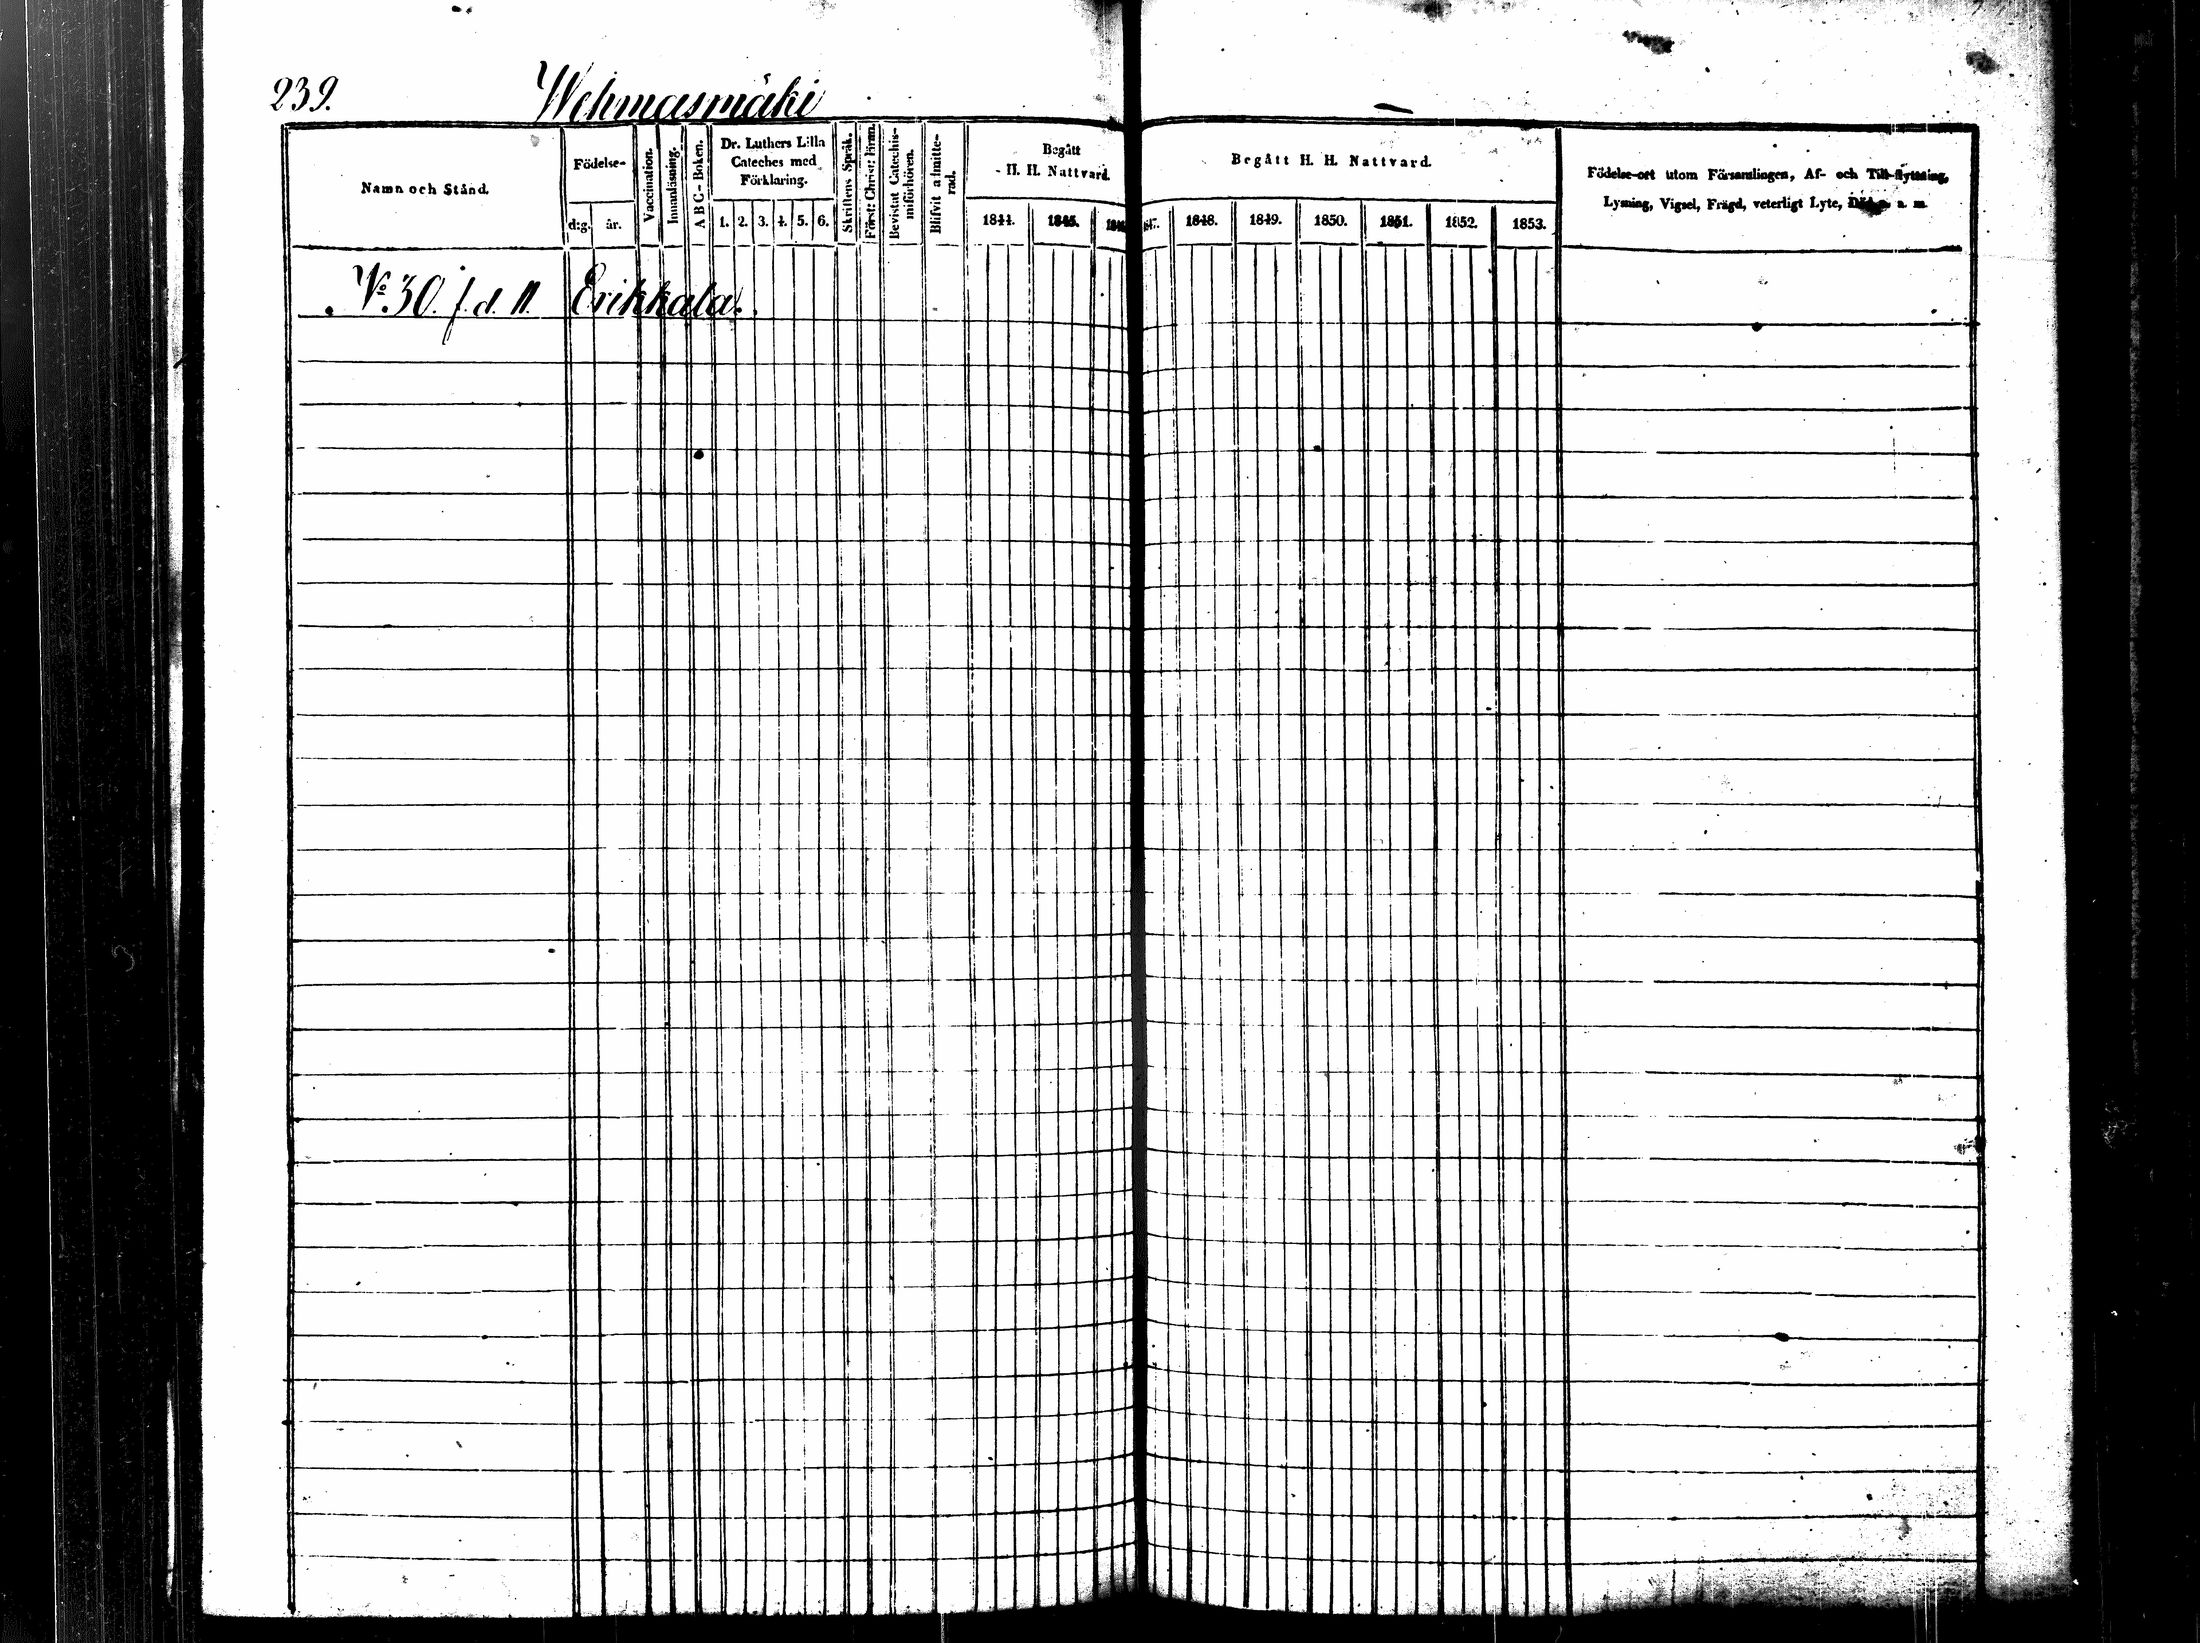 239. Wehmasmäki
Namn och Stånd.
Födelse-
d:g. år.
Vaccination.
Innanläsning.
A B C - Boken.
Dr. Luthers Lilla
Cateches med
Förklaring.
1. 2. 3. 4. 5. 6.
Skriftens Språk.
Först: Christ: läran.
Bevistat Catechis-
miförhören.
Blifvit admitte-
rad.
Begått
H. H. Nattvard.
1844. 1845. 1846.
Begått H. H. Nattvard.
47. 1848. 1849. 1850. 1851. 1852. 1853.
Födelse-ort utom Församlingen, Af- och Till-flyttning,
Lysning, Vigsel, Frägd, veterligt Lyte, Död o. s. m.
No. 30. f. d. 11. Erikkala.